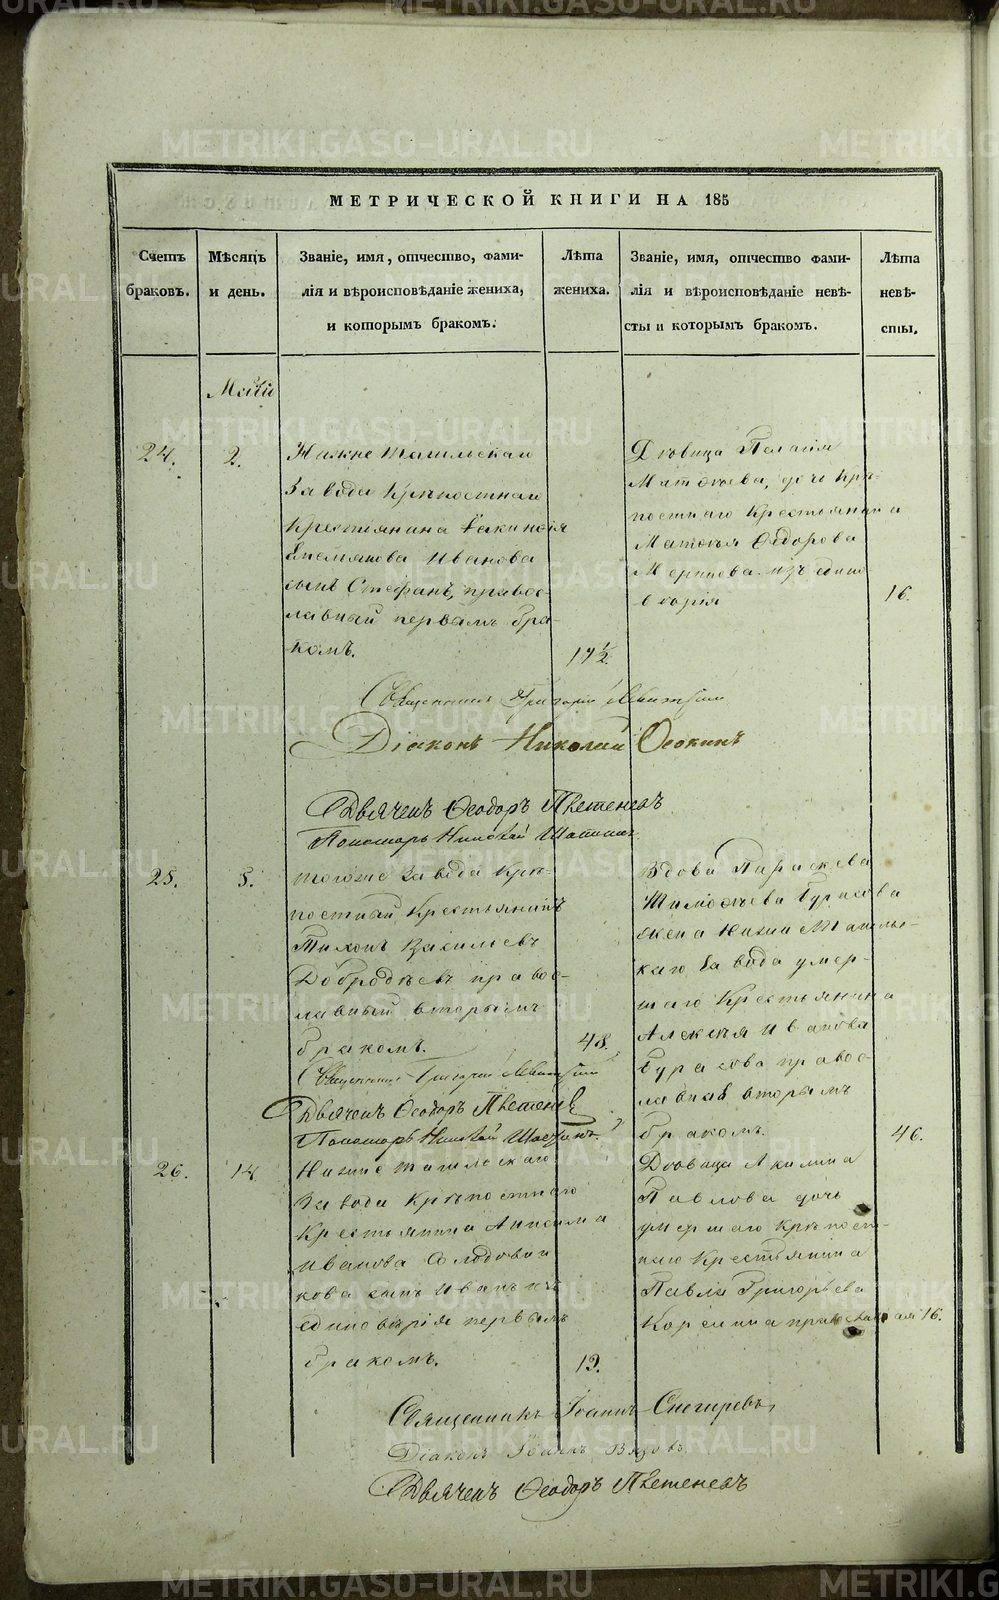 METRIKI.GASO-URAL.RU
МЕТРИЧЕСКОЙ КНИГИ НА 185
Счетъ браковъ.
Мѣсяцъ и день.
Званіе, имя, отчество, фами-
лія и вѣроисповѣданіе жениха,
и которымъ бракомъ.
Лѣта жениха.
Званіе, имя, отчество фами-
лія и вѣроисповѣданіе невѣ-
сты и которымъ бракомъ.
Лѣта невѣ-
сты.
Маій
24.
2.
Нижне Тагильскаго
Завода Крѣпостнаго
Крестьянина Іакинфія
Емельянова Иванова
сынъ Стефанъ, правос-
лавный первымъ бра-
комъ.
17½
Дѣвица Пелагія
Матѳѣева, дочь Крѣ-
постнаго Крестьянина
Матѳѣя Ѳедорова
изъ едино
вѣрія
16.
Священникъ Григорій
Діаконъ Николай Осокинъ
Дьячекъ Ѳеодоръ Плетеневъ
Пономарь Николай
25.
5.
тогоже Завода Крѣ-
постный Крестьянинъ
Тихонъ Васильевъ
Добродѣевъ правос-
лавный вторымъ
бракомъ.
48.
Вдова Параскева
Тимоѳѣева Бурасова
жена Нижне Тагильс-
каго Завода умер-
шаго Крестьянина
Алексѣя Иванова
Бурасова правос-
лавная вторымъ
бракомъ.
46.
Священникъ Григорій
Дьячекъ Ѳеодоръ Плетеневъ
Пономарь Николай
26.
14.
Нижне Тагильскаго
Завода Крѣпостнаго
Крестьянина Анисима
Иванова Солодовни
кова сынъ Иванъ изъ
единовѣрія первымъ
бракомъ.
19.
Дѣвица Акилина
Павлова дочь
умершаго Крѣпост-
наго Крестьянина
Павла Григорьева
Корелина православная
16.
Священникъ Іоаннъ Снегиревъ
Діаконъ Іоаннъ
Дьячекъ Ѳеодоръ Плетеневъ